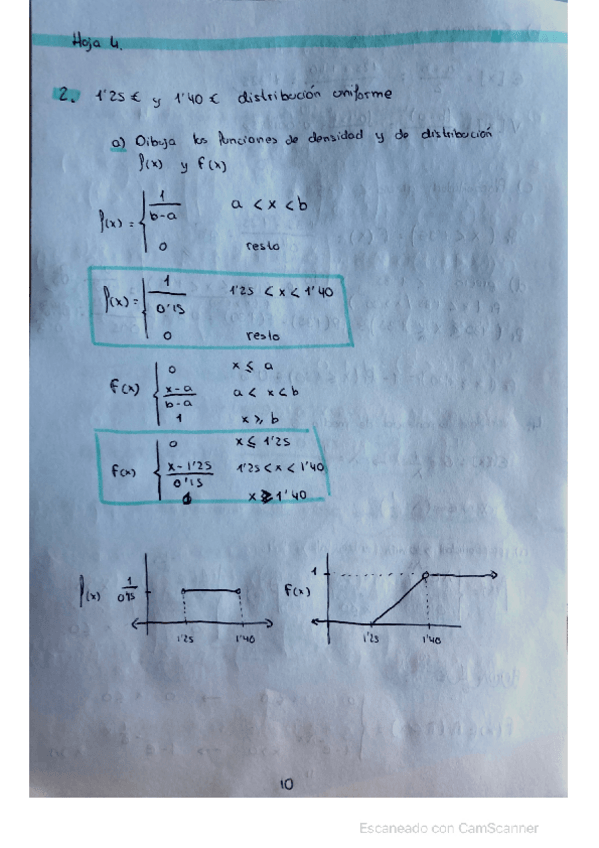 Hoja 4.
2. 1'25 € y 1'40 € distribución uniforme
a) Dibuja las funciones de densidad y de distribución
f(x) y F(x)
f(x) = { 1/(b-a) a < x < b
0 resto
f(x) = { 1/0'15 1'25 < x < 1'40
0 resto
F(x) { 0 x ≤ a
(x-a)/(b-a) a < x < b
1 x ≥ b
F(x) { 0 x ≤ 1'25
(x-1'25)/0'15 1'25 < x < 1'40
x ≥ 1'40
f(x) 1/0'15 1'25 1'40
F(x) 1 1'25 1'40
10
Escaneado con CamScanner